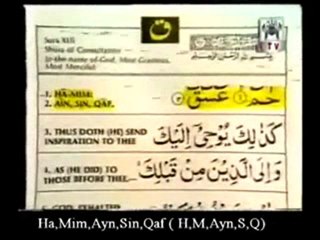 ق
TV
Sura XLII
Shura or Consultation
In the name of God, Most Gracious,
Most Merciful
1. HA-MIM:
2. AIN, SIN, QAF.
حم ١ عسق ٢
3. THUS DOTH (HE) SEND
INSPIRATION TO THEE
كَذَٰلِكَ يُوحِىٓ إِلَيْكَ
4. AS (HE DID) TO
THOSE BEFORE THEE
وَإِلَى ٱلَّذِينَ مِن قَبْلِكَ
Ha,Mim,Ayn,Sin,Qaf ( H,M,Ayn,S,Q)